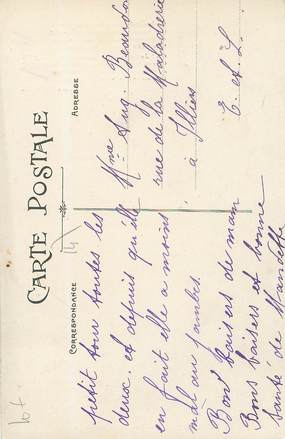 CARTE POSTALE
CORRESPONDANCE
ADRESSE
petit tour toutes les
deux. et depuis qu'elle
en fait elle a moins
mal au jambes.
Bons baisers de mam
Bons baisers et bonne
santé de
Mme Aug. Beaudou
rue de la Maladrerie
à Illiers
E. et L.
14